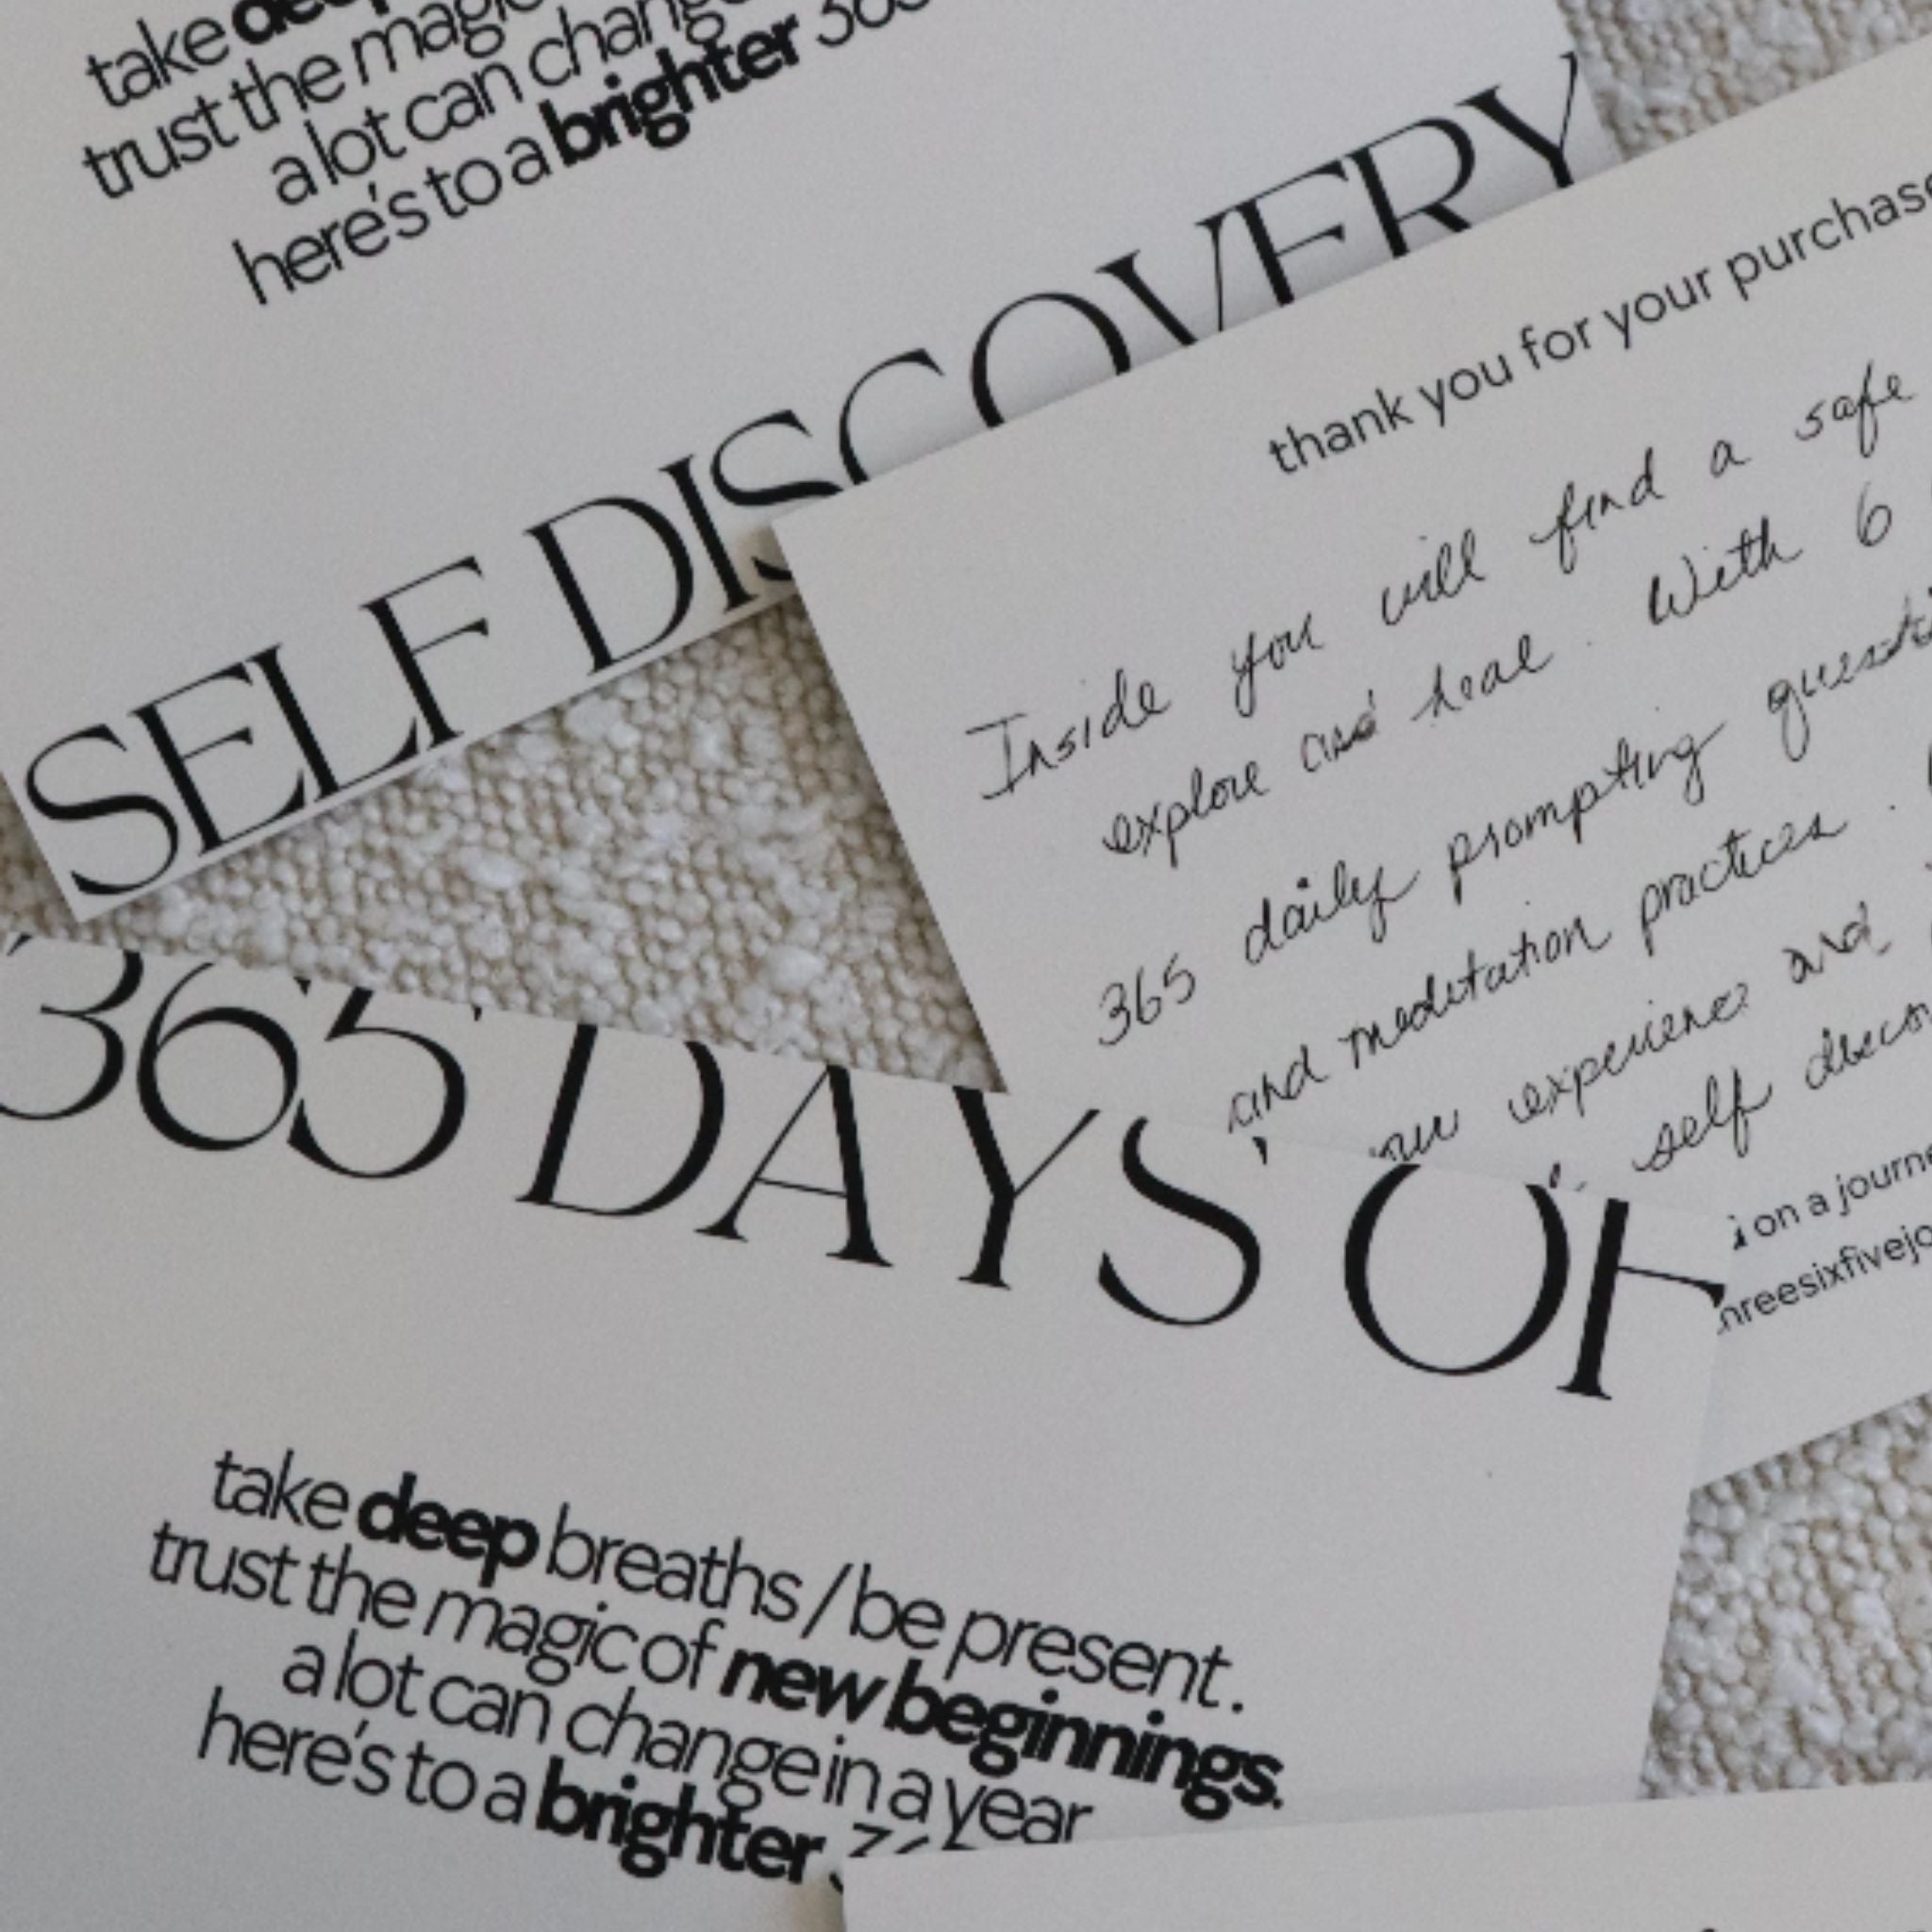 take deep
trust the magic
a lot can change
here's to a brighter 365
SELF DISCOVERY
thank you for your purchase
Inside you will find a safe
explore and heal. With 6
365 daily prompting questi
and meditation practices.
experience and
self disco
on a journe
hreesixfivejo
365 DAYS OF
take deep breaths / be present.
trust the magic of new beginnings.
a lot can change in a year
here's to a brighter